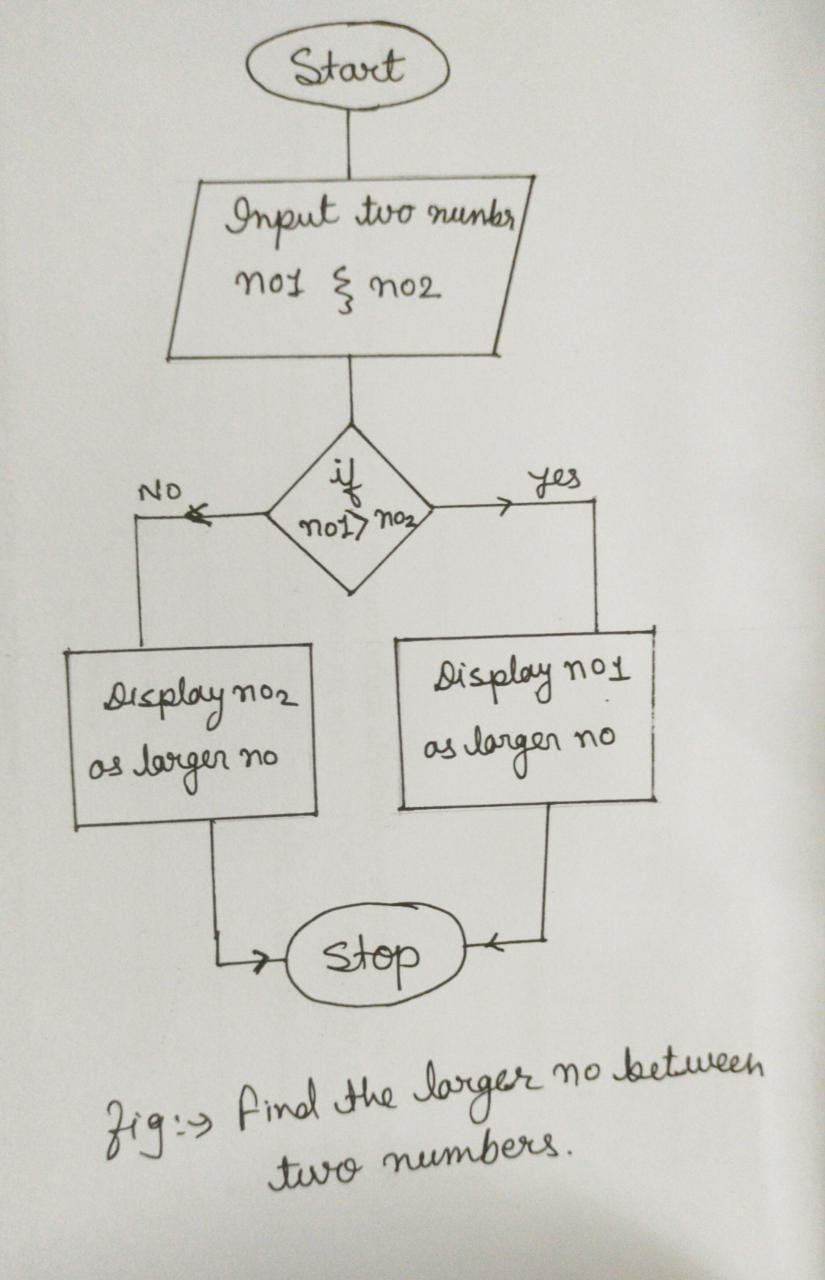 Start
Input two numbr
no1 & no2
if
no1> no2
No
yes
Display no2
as larger no
Display no1
as larger no
Stop
fig:→ Find the larger no between
two numbers.